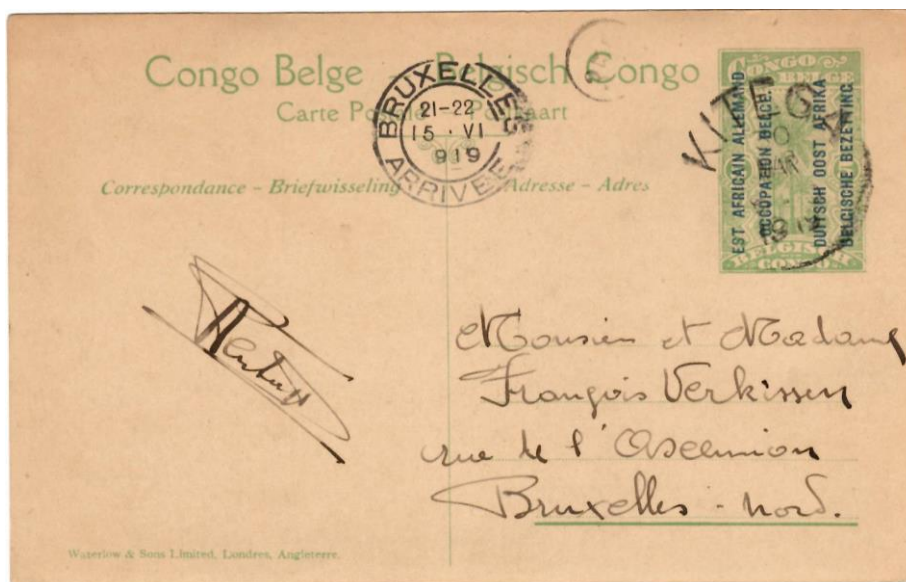 Congo Belge - Belgisch Congo
Carte Postale - Postkaart
BRUXELLES
21-22
15 · VI
919
ARRIVEE
Correspondance - Briefwisseling
Adresse - Adres
CONGO
BELGE
EST AFRICAIN ALLEMAND
OCCUPATION BELGE.
DUITSCH OOST AFRIKA
BELGISCHE BEZETTING
BELGISCH
CONGO
KITEGA
Monsieur et Madame
François Verkissen
rue de l'Ascension
Bruxelles - Nord.
Waterlow & Sons Limited, Londres, Angleterre.